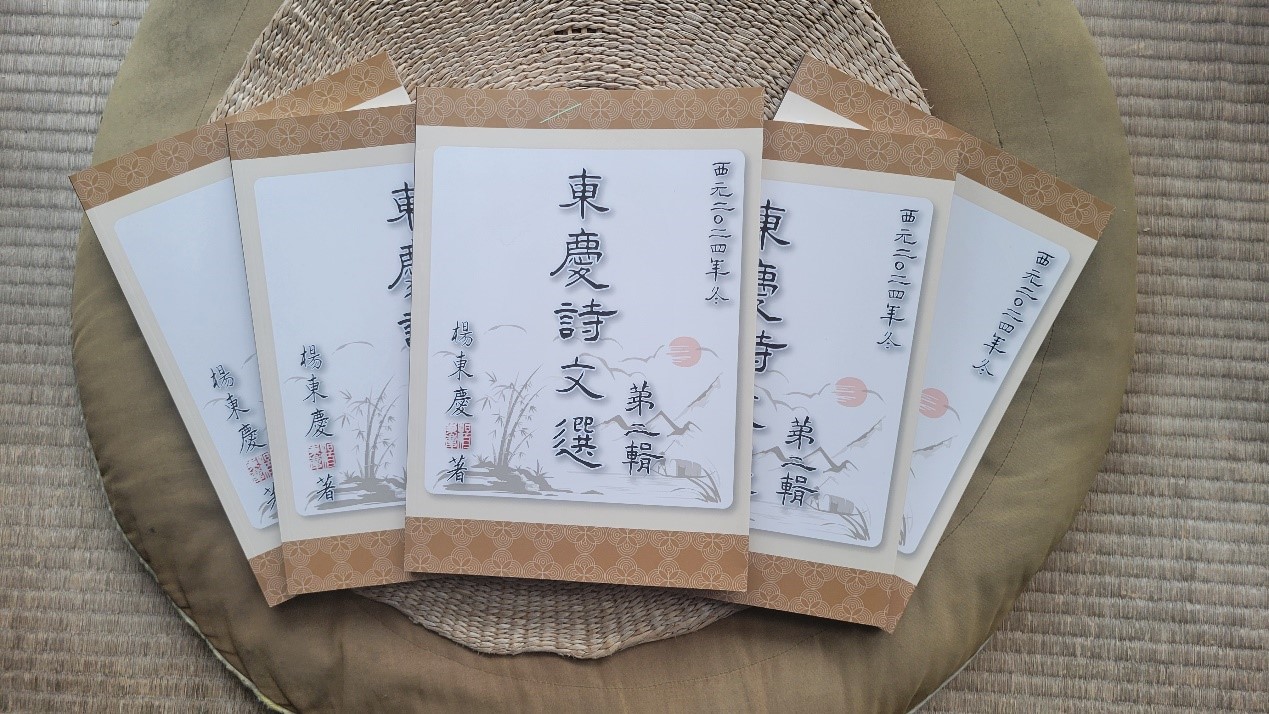 楊東慶
著
東慶詩
楊東慶
著
西元二〇二四年冬
東慶詩文選
第二輯
楊東慶
著
西元二〇二四年冬
東慶詩
第二輯
西元二〇二四年冬